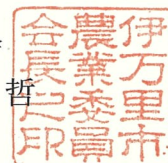 伊万里市
農業委員
会長之印
哲